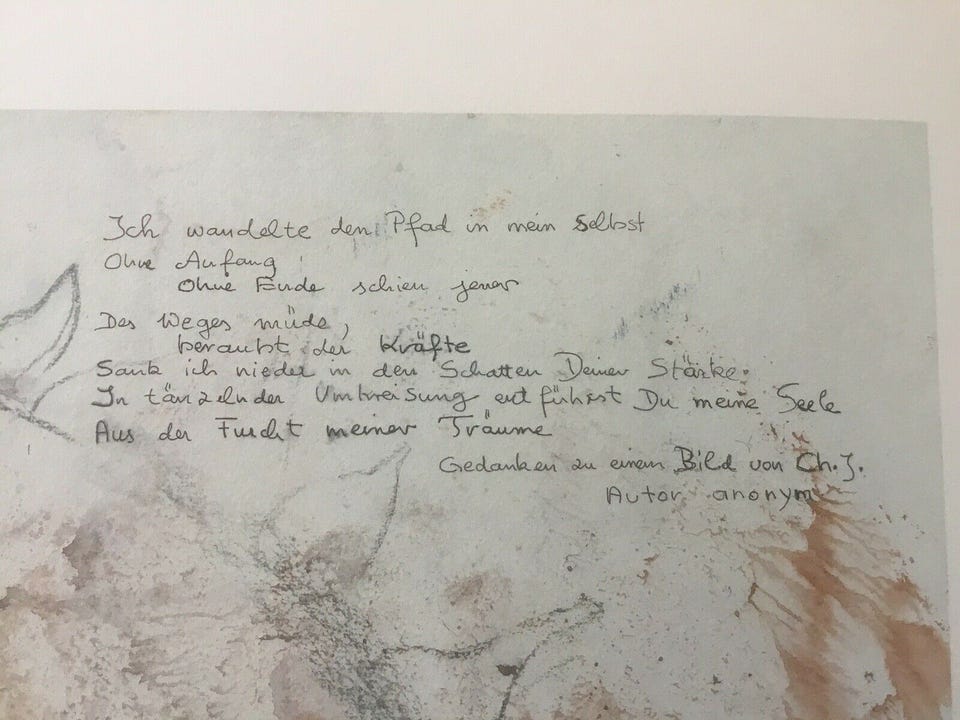 Ich wandelte den Pfad in mein Selbst
Ohne Anfang
Ohne Ende schien jener
Des Weges müde,
beraubt der Kräfte
Sank ich nieder in den Schatten Deiner Stärke.
In tänzelnder Umkreisung entführst Du meine Seele
Aus der Furcht meiner Träume
Gedanken zu einem Bild von Ch. J.
Autor anonym